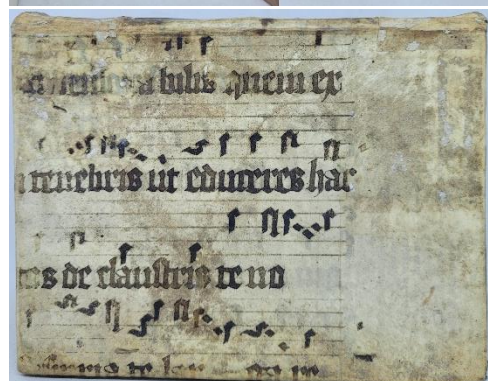 desiderabilis quem ex
n tenebris ut educeres hac
tos de claustris te no
te